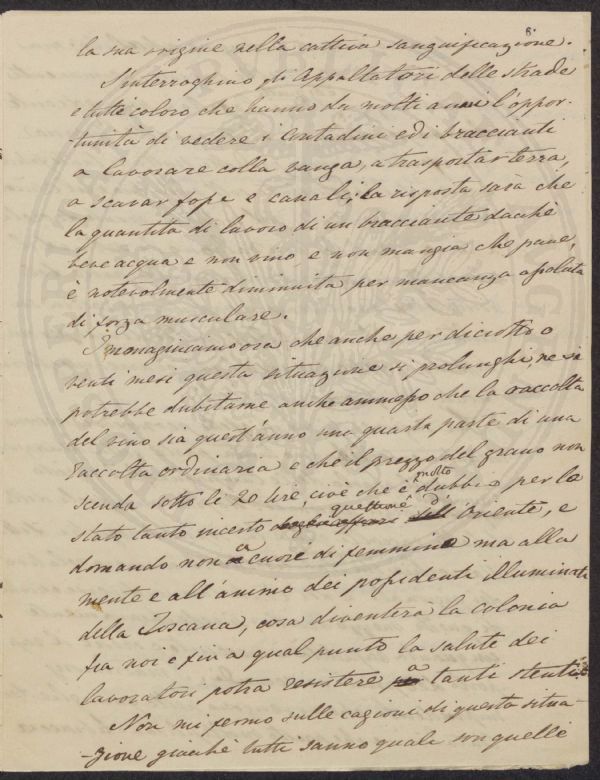 8.
la sua origine nella cattiva sanguificazione.
S'interroghino gli Appaltatori delle strade
e tutti coloro che hanno da molti anni l'oppor-
tunità di vedere i Contadini ed i braccianti
a lavorare colla vanga, a trasportar terra,
a scavar fosse e canali; la risposta sarà che
la quantità di lavoro di un bracciante dachè
beve acqua e non vino e non mangia che pane,
è notevolmente diminuita per mancanza assoluta
di forza musculare.
Immaginiamo ora che anche per diciotto o
venti mesi questa situazione si prolunghi, ne si
potrebbe dubitarne anche ammesso che la raccolta
del vino sia quest'anno una quarta parte di una
raccolta ordinaria e che il prezzo del grano non
scenda sotto le 20 lire, cioè che è molto dubbio per lo
stato tanto incerto d'Oriente, e
domando non a cuori di femmine ma alla
mente e all'animo dei possidenti illuminati
della Toscana, cosa diventerà la colonia
fra noi e fin a qual punto la salute dei
lavoratori potrà resistere a tanti stenti.
Non mi fermo sulle cagioni di questa situa-
-zione giacchè tutti sanno quali son quelle